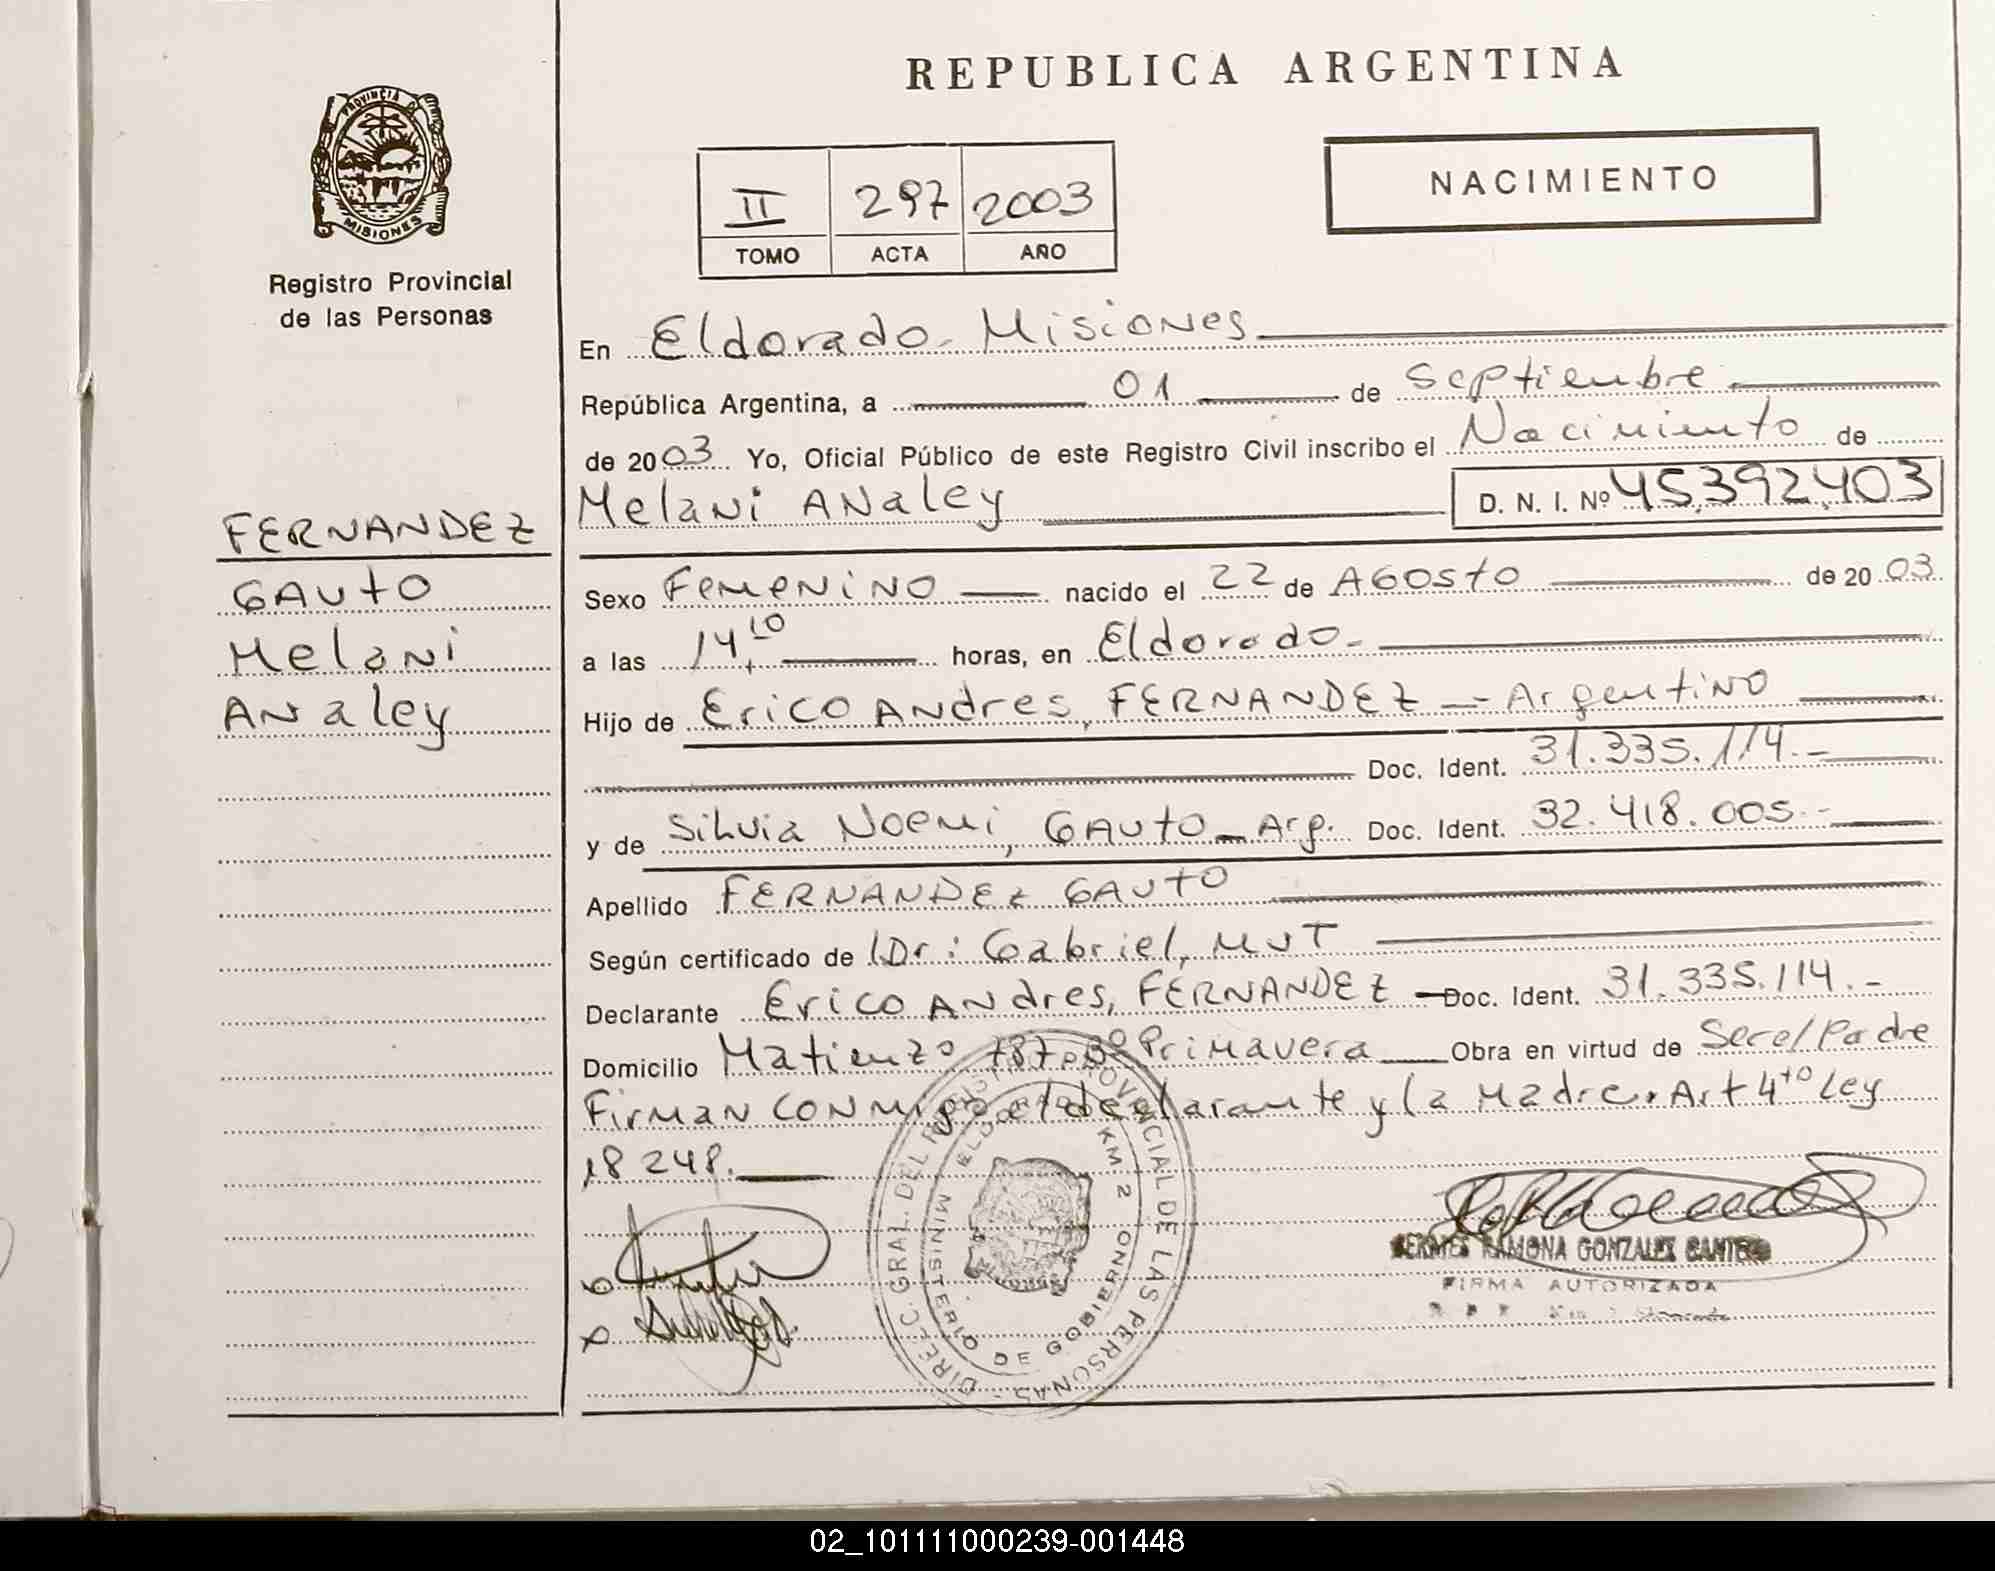 REPUBLICA ARGENTINA
PROVINCIA DE
MISIONES
Registro Provincial
de las Personas
II 297 2003
TOMO ACTA AÑO
NACIMIENTO
En Eldorado - Misiones
República Argentina, a 01 de Septiembre
de 2003 Yo, Oficial Público de este Registro Civil inscribo el Nacimiento de
Melani ANaley D. N. I. Nº 45.392.403
FERNANDEZ
GAUTO
Melani
ANaley
Sexo Femenino nacido el 22 de Agosto de 2003
a las 14 10 horas, en Eldorado.-
Hijo de Erico Andres, FERNANDEZ - Argentino
Doc. Ident. 31.335.114.-
y de Silvia Noemi, GAUTO - Arg. Doc. Ident. 32.418.005.-
Apellido FERNANDEZ GAUTO
Según certificado de Dr: Gabriel, MUT
Declarante Erico ANdres, FERNANDEZ - Doc. Ident. 31.335.114.-
Domicilio Matienzo 787 Bº Primavera Obra en virtud de Ser el Padre
Firman conmigo el declarante y la Madre. Art 4to Ley
18248.
DIRECC. GRAL. DEL REGISTRO PROVINCIAL DE LAS PERSONAS -
MINISTERIO DE GOBIERNO
ELDORADO KM 2
RAMONA GONZALEZ
FIRMA AUTORIZADA
02_101111000239-001448